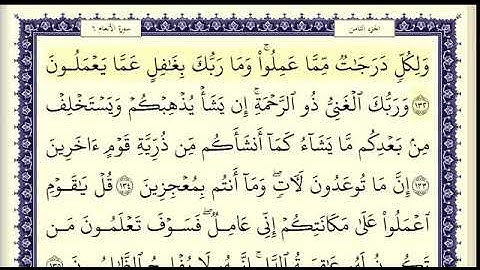 سورة الأنعام ٦
الجزء الثامن
وَلِكُلٍّ دَرَجَٰتٌ مِّمَّا عَمِلُوا۟ ۚ وَمَا رَبُّكَ بِغَٰفِلٍ عَمَّا يَعْمَلُونَ
١٣٢ وَرَبُّكَ ٱلْغَنِىُّ ذُو ٱلرَّحْمَةِ ۚ إِن يَشَأْ يُذْهِبْكُمْ وَيَسْتَخْلِفْ
مِنۢ بَعْدِكُم مَّا يَشَآءُ كَمَآ أَنشَأَكُم مِّن ذُرِّيَّةِ قَوْمٍ ءَاخَرِينَ
١٣٣ إِنَّ مَا تُوعَدُونَ لَـَٔاتٍ ۖ وَمَآ أَنتُم بِمُعْجِزِينَ ١٣٤ قُلْ يَٰقَوْمِ
ٱعْمَلُوا۟ عَلَىٰ مَكَانَتِكُمْ إِنِّى عَامِلٌ ۖ فَسَوْفَ تَعْلَمُونَ مَن
تَكُونُ لَهُۥ عَٰقِبَةُ ٱلدَّارِ ۗ إِنَّهُۥ لَا يُفْلِحُ ٱلظَّٰلِمُونَ ١٣٥